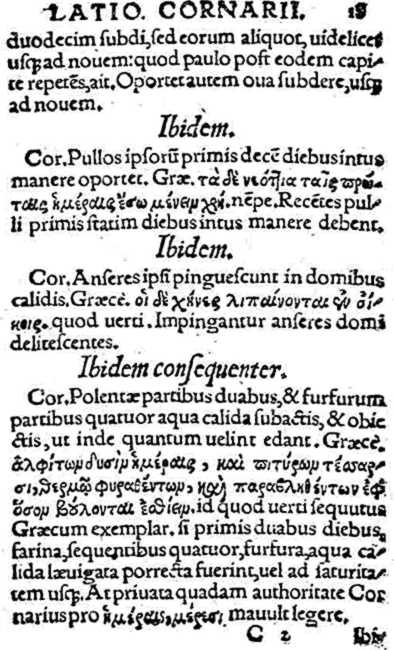 LATIO. CORNARII. 18
duodecim subdi, sed eorum aliquot, uidelicet
usq; ad nouem: quod paulo post eodem capi-
te repetēs, ait. Oportet autem oua subdere, usq;
ad nouem.
Ibidem.
Cor. Pullos ipsorū primis decē diebus intus
manere oportet. Græ. τὰ δὲ νεόττια ταῖς πρώ-
ταις ἡμέραις ἔσω μένειν χρή. nēpe. Recētes pul-
li primis statim diebus intus manere debent.
Ibidem.
Cor. Anseres ipsi pinguescunt in domibus
calidis. Græcè. οἱ δὲ χῆνες λιπαίνονται ἐν οἴ-
κοις. quod uerti. Impingantur anseres domi
delitescentes.
Ibidem consequenter.
Cor. Polentæ partibus duabus, & furfurum
partibus quatuor aqua calida subactis, & obie
ctis, ut inde quantum uelint edant. Græcè.
ἀλφίτων δυσὶν ἡμέραις, καὶ πιτύρων τέσσαρ-
σι, θερμῷ φυραθέντων, καὶ παραβληθέντων ἐφ'
ὅσον βούλονται ἐσθίειν. id quod uerti sequutus
Græcum exemplar. si primis duabus diebus,
farina, sequentibus quatuor, furfura, aqua ca-
lida læuigata porrecta fuerint, uel ad saturita-
tem usq;. At priuata quadam authoritate Cor
narius pro ἡμέραις, μέρεσι mauult legere.
C 2 Ibi-